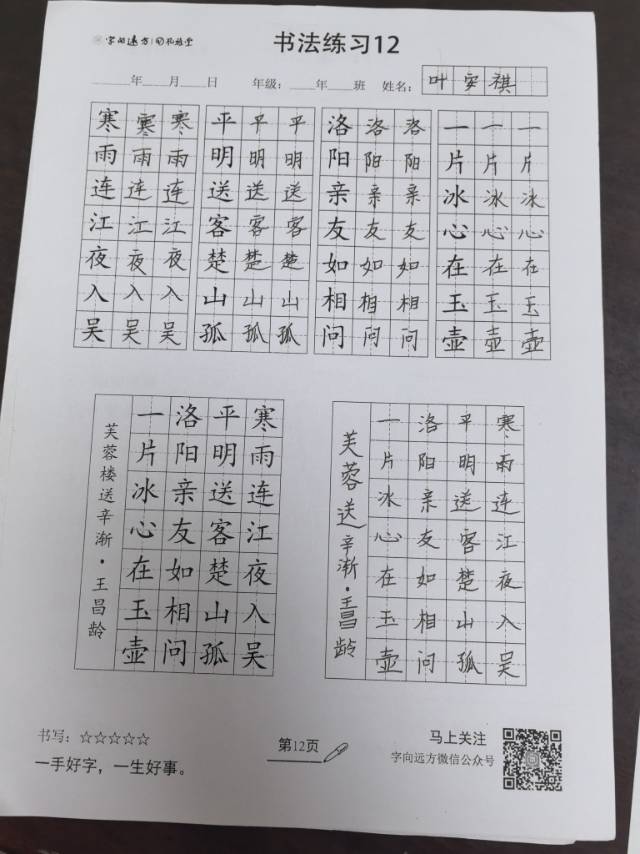 字向远方
书法练习12
____年____月____日 年级:____年____班 姓名: 叶安祺
寒雨连江夜入吴
寒雨连江夜入吴
寒雨连江夜入吴
平明送客楚山孤
平明送客楚山孤
平明送客楚山孤
洛阳亲友如相问
洛阳亲友如相问
洛阳亲友如相问
一片冰心在玉壶
一片冰心在玉壶
一片冰心在玉壶
寒雨连江夜入吴
平明送客楚山孤
洛阳亲友如相问
一片冰心在玉壶
芙蓉楼送辛渐·王昌龄
寒雨连江夜入吴
平明送客楚山孤
洛阳亲友如相问
一片冰心在玉壶
芙蓉送辛渐·王昌龄
书写:☆☆☆☆☆
一手好字，一生好事。
第12页
马上关注
字向远方微信公众号